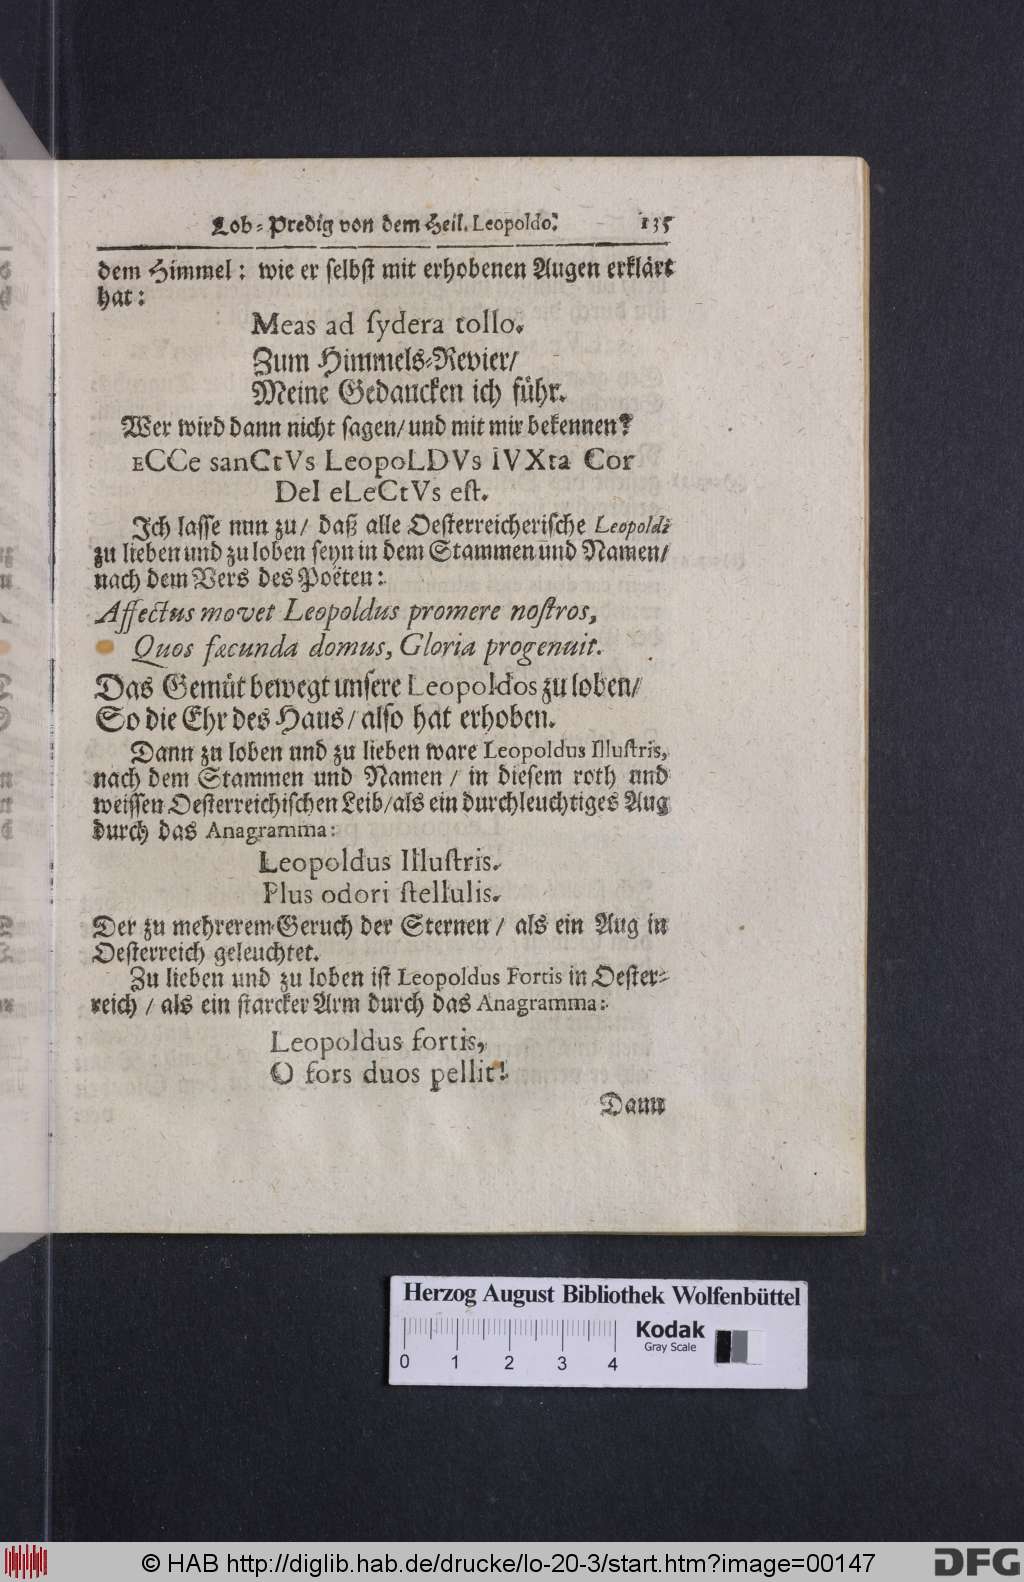 Lob-Predig von dem Heil. Leopoldo. 135
dem Himmel: wie er selbst mit erhobenen Augen erklärt
hat:
Meas ad sydera tollo.
Zum Himmels-Revier/
Meine Gedancken ich führ.
Wer wird dann nicht sagen/ und mit mir bekennen?
ECCe sanCtVs LeopoLDVs IVXta Cor
DeI eLeCtVs est.
Ich lasse nun zu/ daß alle Oesterreicherische Leopoldi
zu lieben und zu loben seyn in dem Stammen und Namen/
nach dem Vers des Poëten:
Affectus movet Leopoldus promere nostros,
Quos fæcunda domus, Gloria progenuit.
Das Gemüt bewegt unsere Leopoldos zu loben/
So die Ehr des Haus/ also hat erhoben.
Dann zu loben und zu lieben ware Leopoldus Illustris,
nach dem Stammen und Namen/ in diesem roth und
weissen Oesterreichischen Leib/ als ein durchleuchtiges Aug
durch das Anagramma:
Leopoldus Illustris.
Plus odori stellulis.
Der zu mehrerem Geruch der Sternen/ als ein Aug in
Oesterreich geleuchtet.
Zu lieben und zu loben ist Leopoldus Fortis in Oester-
reich/ als ein starcker Arm durch das Anagramma:
Leopoldus fortis,
O fors duos pellit!
Dann
Herzog August Bibliothek Wolfenbüttel
Kodak
Gray Scale
0 1 2 3 4
© HAB http://diglib.hab.de/drucke/lo-20-3/start.htm?image=00147
DFG